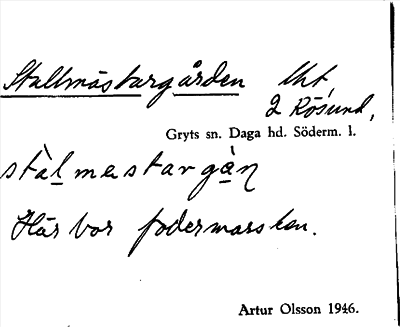 Stallmästargården lht,
2 Rösund,
Gryts sn. Daga hd. Söderm. l.
stàl mestargàṇ
Här bor fodermarsken.
Artur Olsson 1946.